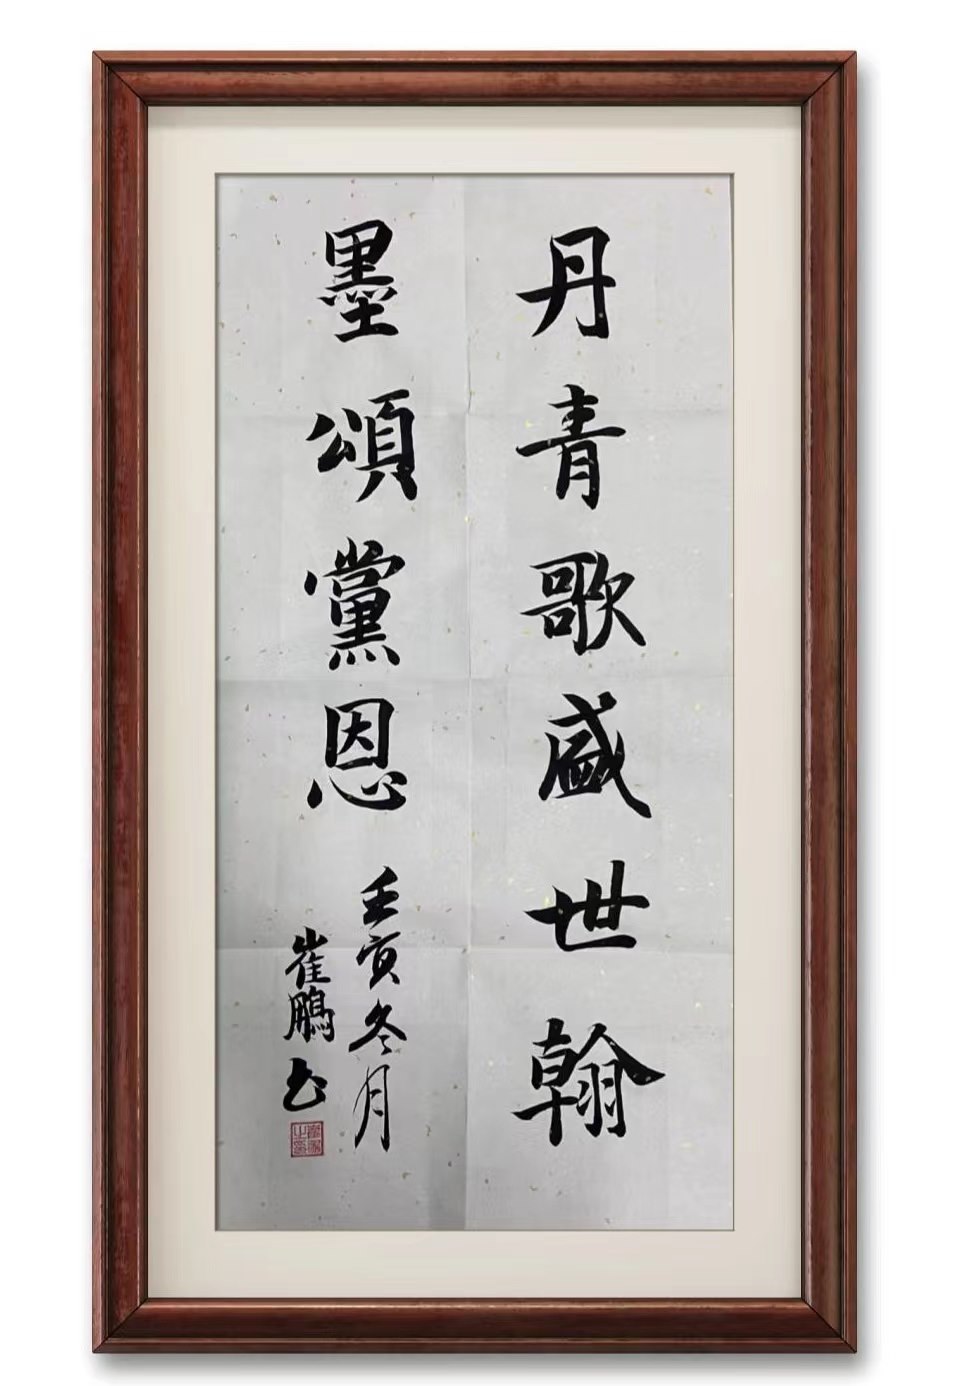 丹青歌盛世翰
墨頌黨恩
壬寅冬月
崔鵬书